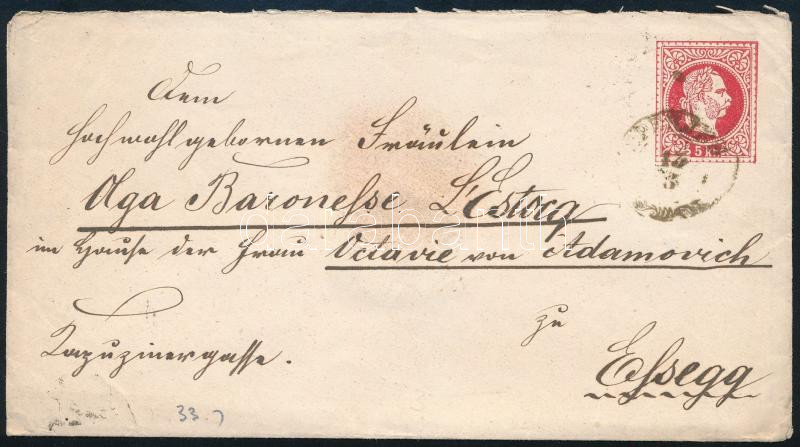 Dem
Hochwohlgebornen Fräulein
Olga Baronesse L'Estocq
im Hause der Frau Octavie von Adamovich
zu
Kapuzinergasse.
Essegg
5 kr
33.
darabanth